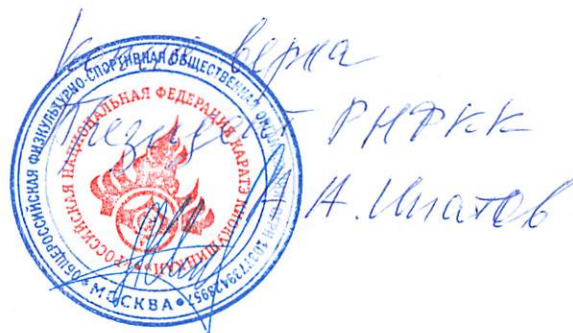 Копия верна
Президент РНФКК
А.А. Ипатов
ОБЩЕРОССИЙСКАЯ ФИЗКУЛЬТУРНО-СПОРТИВНАЯ ОБЩЕСТВЕННАЯ
"РОССИЙСКАЯ НАЦИОНАЛЬНАЯ ФЕДЕРАЦИЯ КАРАТЭ КИОКУШИНКАЙ"
МОСКВА